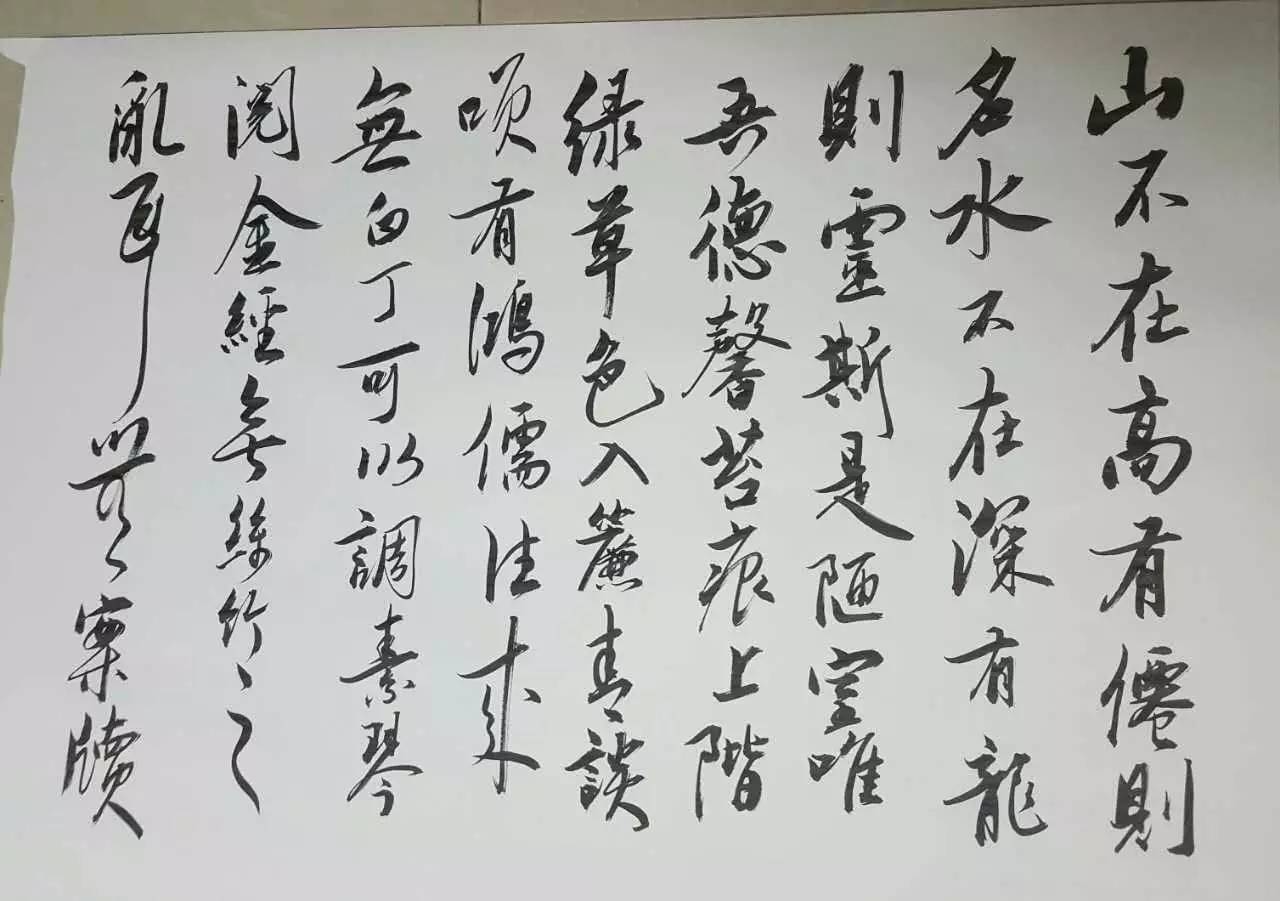 山不在高有僊則
名水不在深有龍
則靈斯是陋室唯
吾德馨苔痕上階
緑草色入簾青談
咲有鴻儒往来
無白丁可以調素琴
閲金經無絲竹之
亂耳案牘